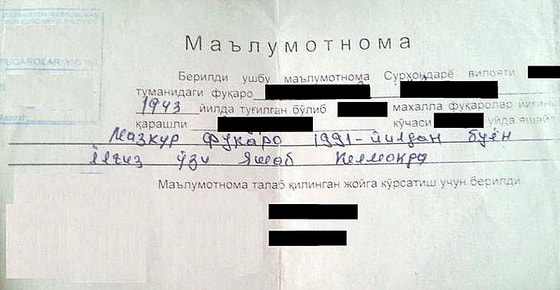 FUQAROLAR YIG'
Маълумотнома
Берилди ушбу маълумотнома Сурхондарё вилояти
туманидаги фуқаро
1943 йилда туғилган бўлиб махалла фуқаролар йиғин
қарашли кўчаси уйда яшаб
Мазкур фуқаро 1991-йилдан буён
ёлғиз ўзи яшаб келмоқда
Маълумотнома талаб қилинган жойга кўрсатиш учун берилди